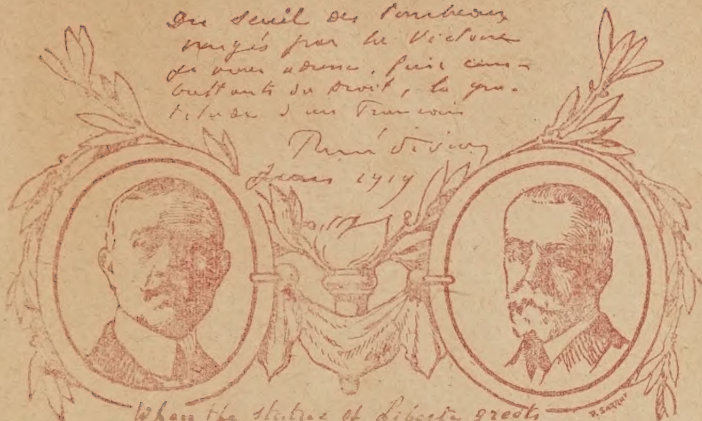 Du seuil des tombeaux
vengés par la Victoire
je vous adresse, fiers com-
battants du Droit, la gra-
titude d'un Français
René
1919
When the Statue of Liberty greets